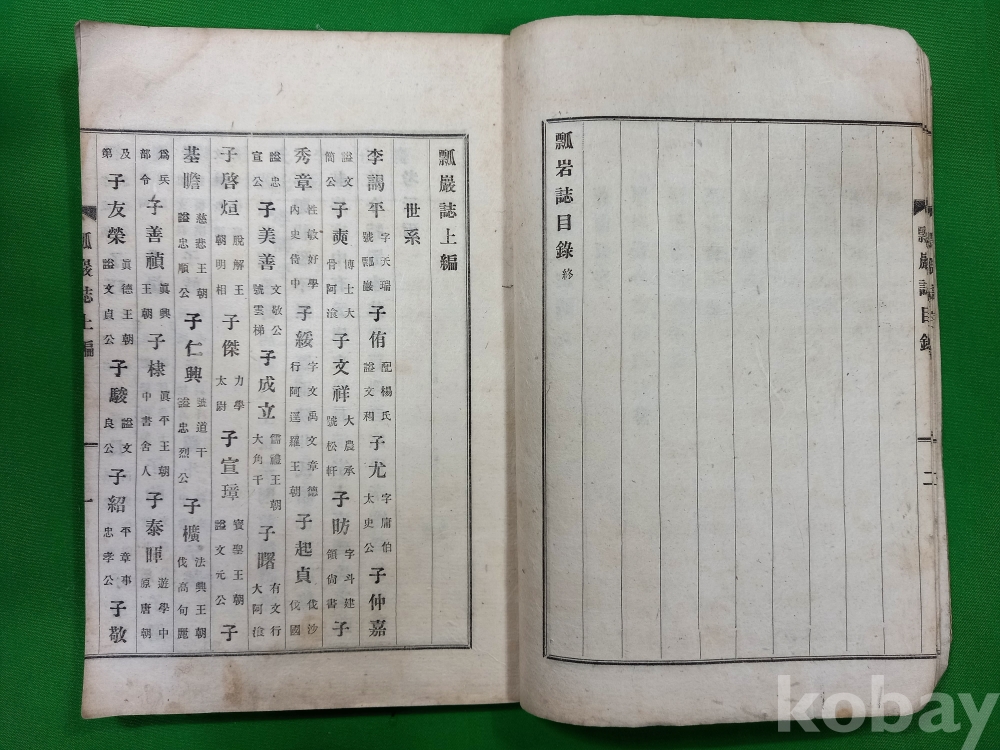 瓢岩誌目錄 終
瓢巖誌目錄 二
瓢巖誌上編
世系
李謁平 字天瑞 號瓢巖 子侑 配楊氏 謚文 子尤 字庸伯 太史公 子仲嘉
謚文簡公 子奭 博士大骨阿飡 子文祥 大農承 號松軒 子昉 字斗建 領尙書 子
秀章 性敏好學 內史侍中 子綏 字文禹文章德行阿達羅王朝 子起貞 伐沙伐國
謚忠宣公 子美善 文敬公 號雲梯 子成立 儒禮王朝 大角干 子曙 有文行 大阿飡
子啓烜 脫解王朝明相 子傑 力學 太尉 子宣璋 實聖王朝 謚文元公 子
基瞻 慈悲王朝 謚忠順公 子仁興 號道干 謚忠烈公 子櫎 法興王朝 伐高句麗
爲兵部令 子善禎 眞興王朝 子棣 眞平王朝 中書舍人 子泰暉 遊學中原唐朝
及第 子友榮 眞德王朝 謚文貞公 子駿 謚文良公 子紹 平章事 忠孝公 子敬
瓢巖誌上編 一
kobay